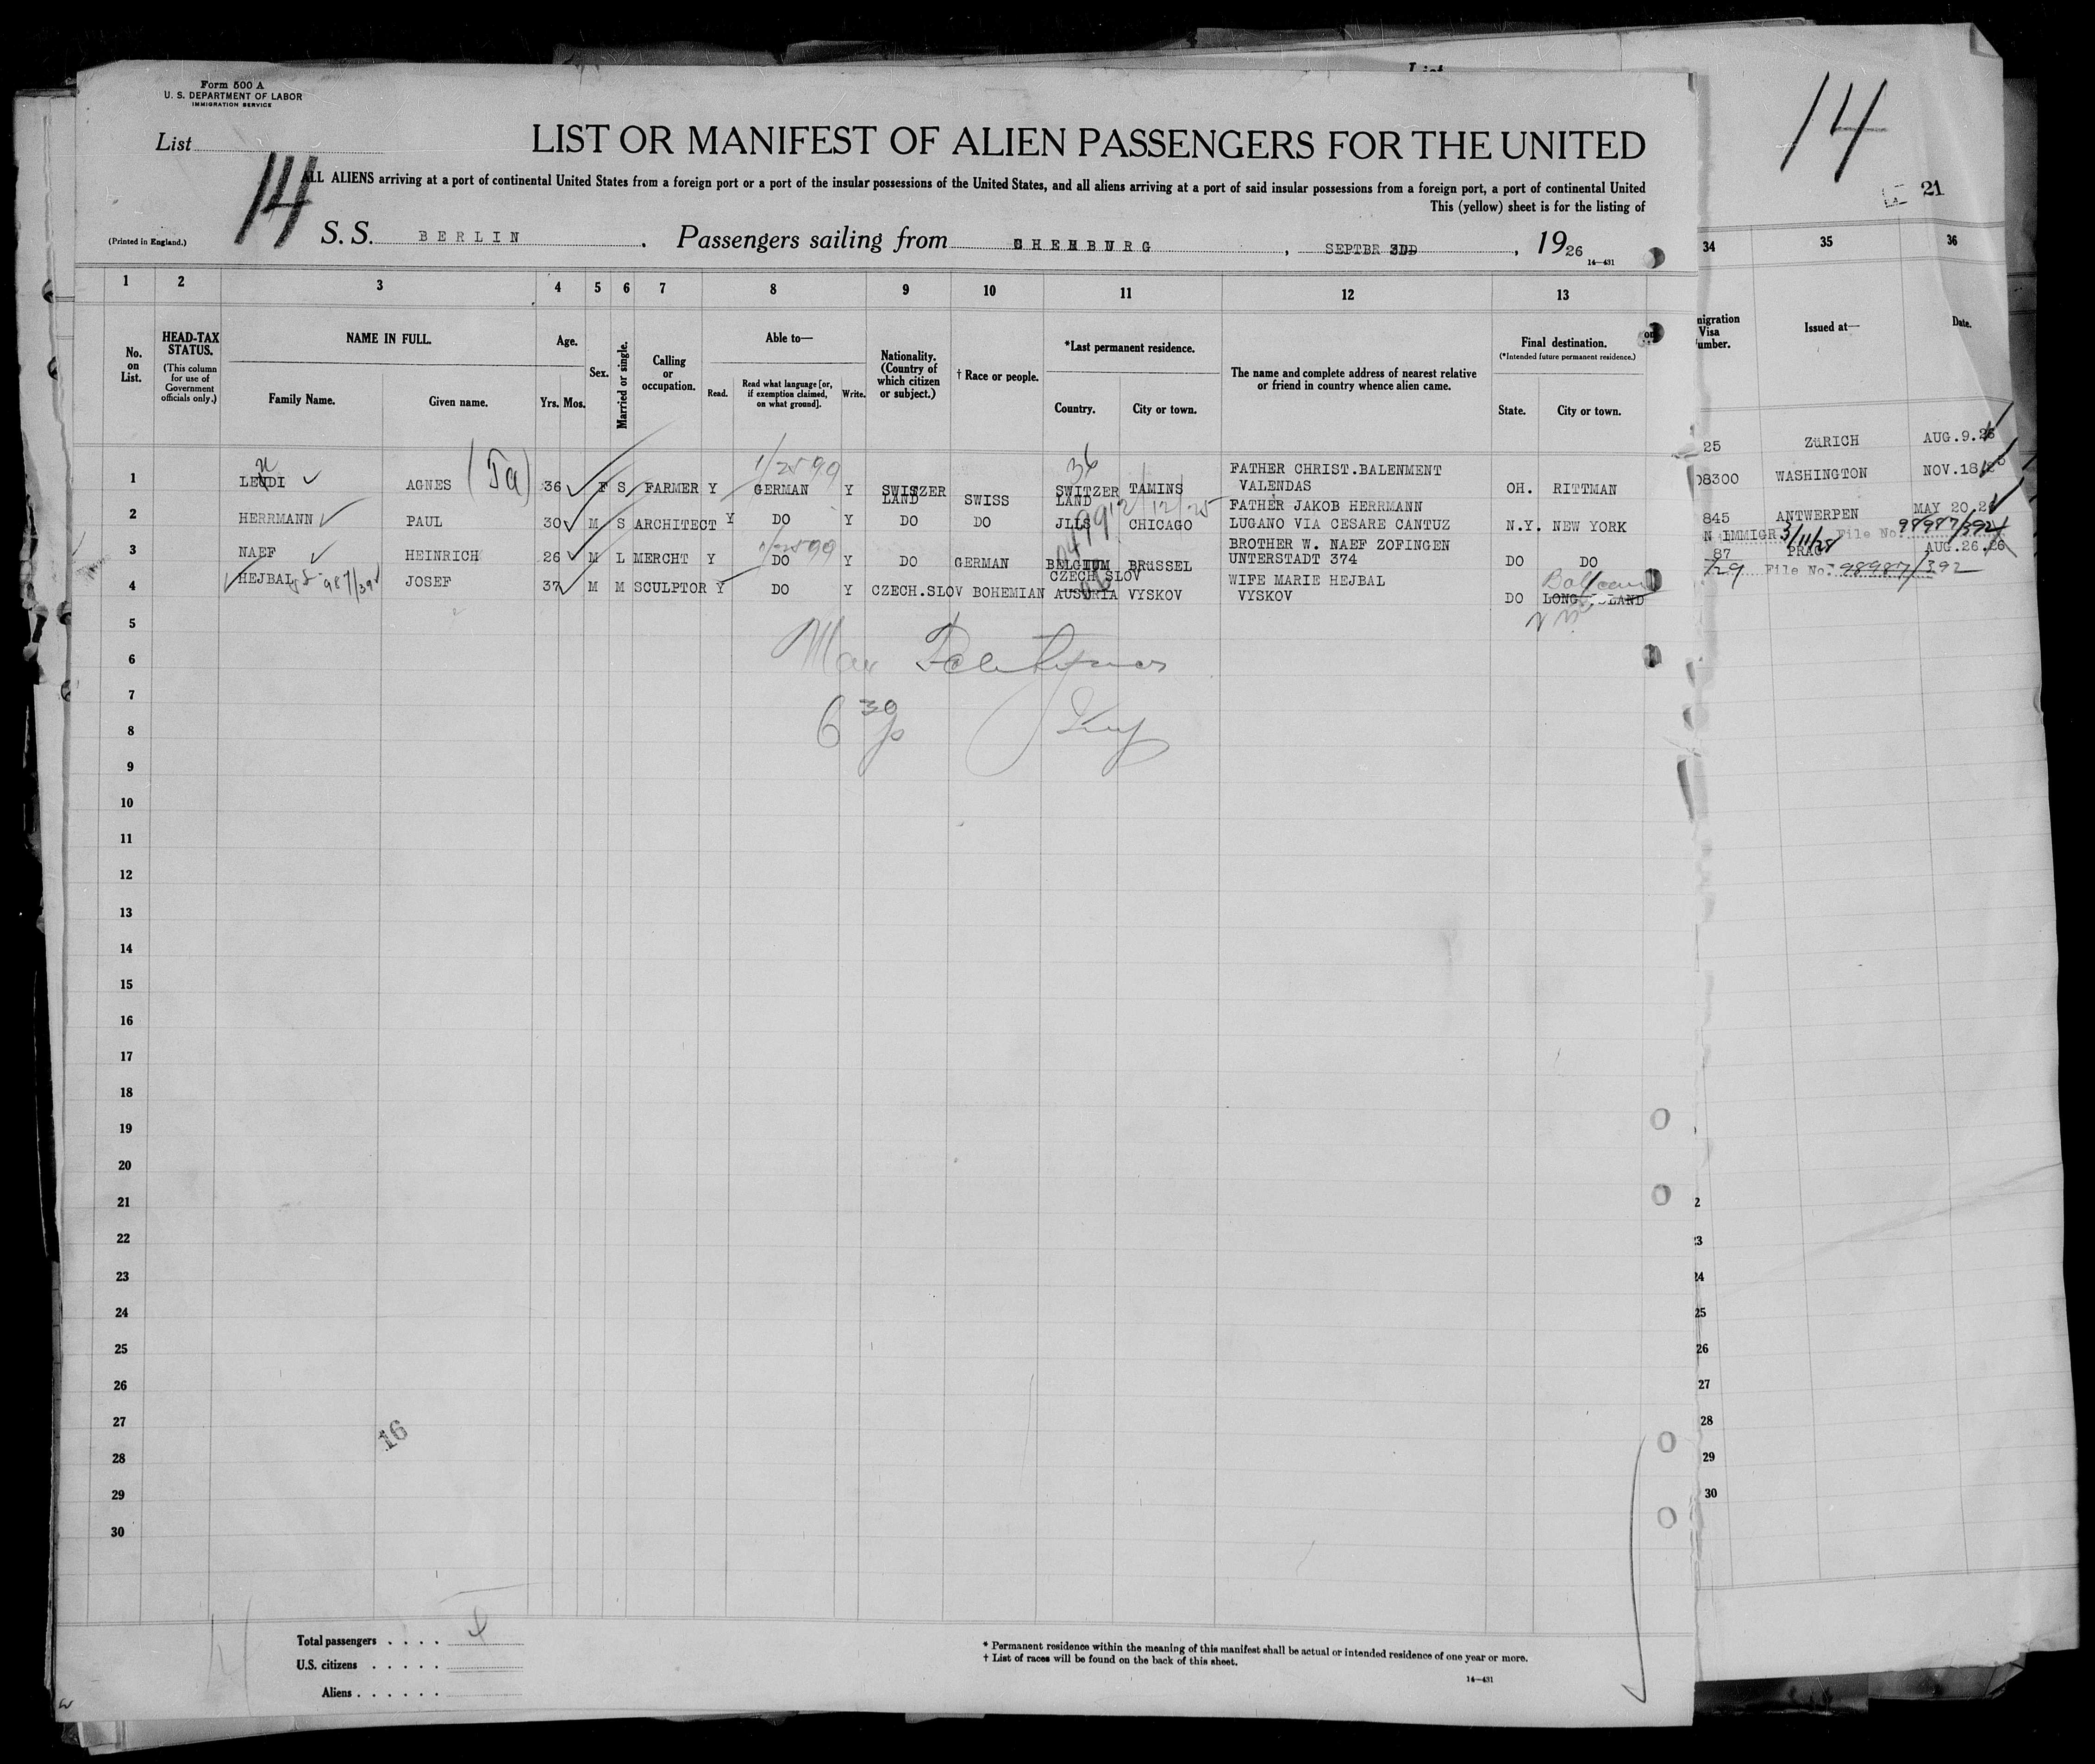 Form 500 A
U. S. DEPARTMENT OF LABOR
IMMIGRATION SERVICE
List
14
LIST OR MANIFEST OF ALIEN PASSENGERS FOR THE UNITED
ALL ALIENS arriving at a port of continental United States from a foreign port or a port of the insular possessions of the United States, and all aliens arriving at a port of said insular possessions from a foreign port, a port of continental United
This (yellow) sheet is for the listing of
(Printed in England.)
S. S. BERLIN . Passengers sailing from , SEPTBR , 1926
14—431
14
21
1 2 3 4 5 6 7 8 9 10 11 12 13
34 35 36
No. on List.
HEAD-TAX STATUS.
(This column for use of Government officials only.)
NAME IN FULL.
Family Name. Given name.
Age.
Yrs. Mos.
Sex.
Married or single.
Calling or occupation.
Able to—
Read. Read what language [or, if exemption claimed, on what ground]. Write.
Nationality. (Country of which citizen or subject.)
† Race or people.
*Last permanent residence.
Country. City or town.
The name and complete address of nearest relative or friend in country whence alien came.
Final destination.
(*Intended future permanent residence.)
State. City or town.
migration Visa umber.
Issued at—
Date.
1 AGNES 36 F S FARMER Y GERMAN Y SWITZER LAND SWISS SWITZER LAND TAMINS FATHER CHRIST.BALENMENT VALENDAS OH. RITTMAN
2 HERRMANN PAUL 30 M S ARCHITECT Y DO Y DO DO JLLS CHICAGO FATHER JAKOB HERRMANN LUGANO VIA CESARE CANTUZ N.Y. NEW YORK
3 NAEF HEINRICH 26 M L MERCHT Y DO Y DO GERMAN BELGIUM BRuSSEL BROTHER W. NAEF ZOFINGEN UNTERSTADT 374 DO DO
4 HEJBAL JOSEF 37 M M SCULPTOR Y DO Y CZECH.SLOV BOHEMIAN CZECH SLOV AUSTRIA VYSKOV WIFE MARIE HEJBAL VYSKOV DO LONG ISLAND
25 ZuRICH AUG.9.26
08300 WASHINGTON NOV.18
845 ANTWERPEN MAY 20.26
N IMMIGR 3/11/28 File No. 98987/392
87 PRAG AUG.26.26
/29 File No. 98987/392
5
6
7
6 30 p
8
9
10
11
12
13
14
15
16
17
18
19
20
21
22
23
24
25
26
27
28
29
30
16
2
23
24
25
26
27
28
29
30
Total passengers . . . .
U.S. citizens . . . . .
Aliens . . . . . .
* Permanent residence within the meaning of this manifest shall be actual or intended residence of one year or more.
† List of races will be found on the back of this sheet.
14—431